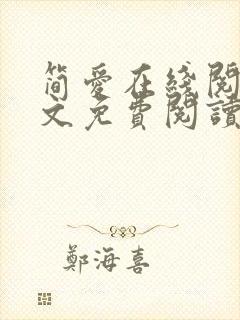 简爱在綫閱
文免費閱讀
鄭海喜